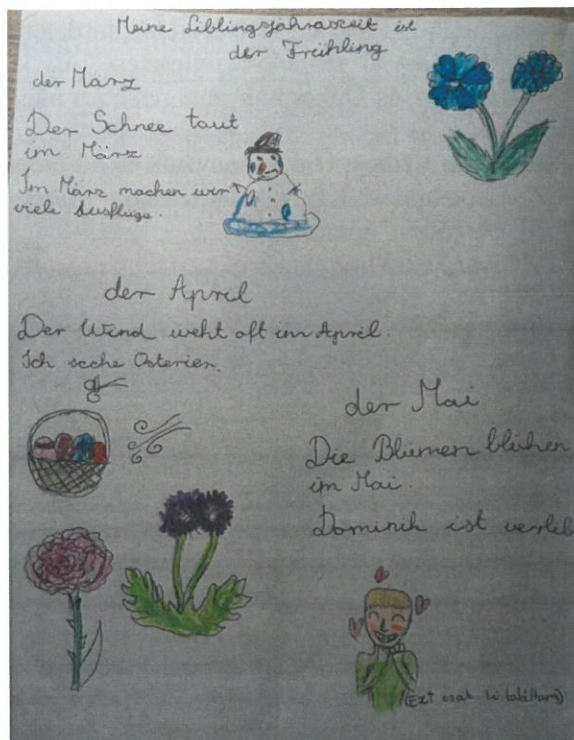 Meine Liblingsjahraszeit ist
der Frühling
der März
Der Schnee taut
im März
Im März machen wir
viele Ausflüge.
der April
Der Wind weht oft im April.
Ich seche Osterier.
der Mai
Die Blumen blühen
im Mai.
Dominik ist verlieb
(Ezt csak ki találtam)